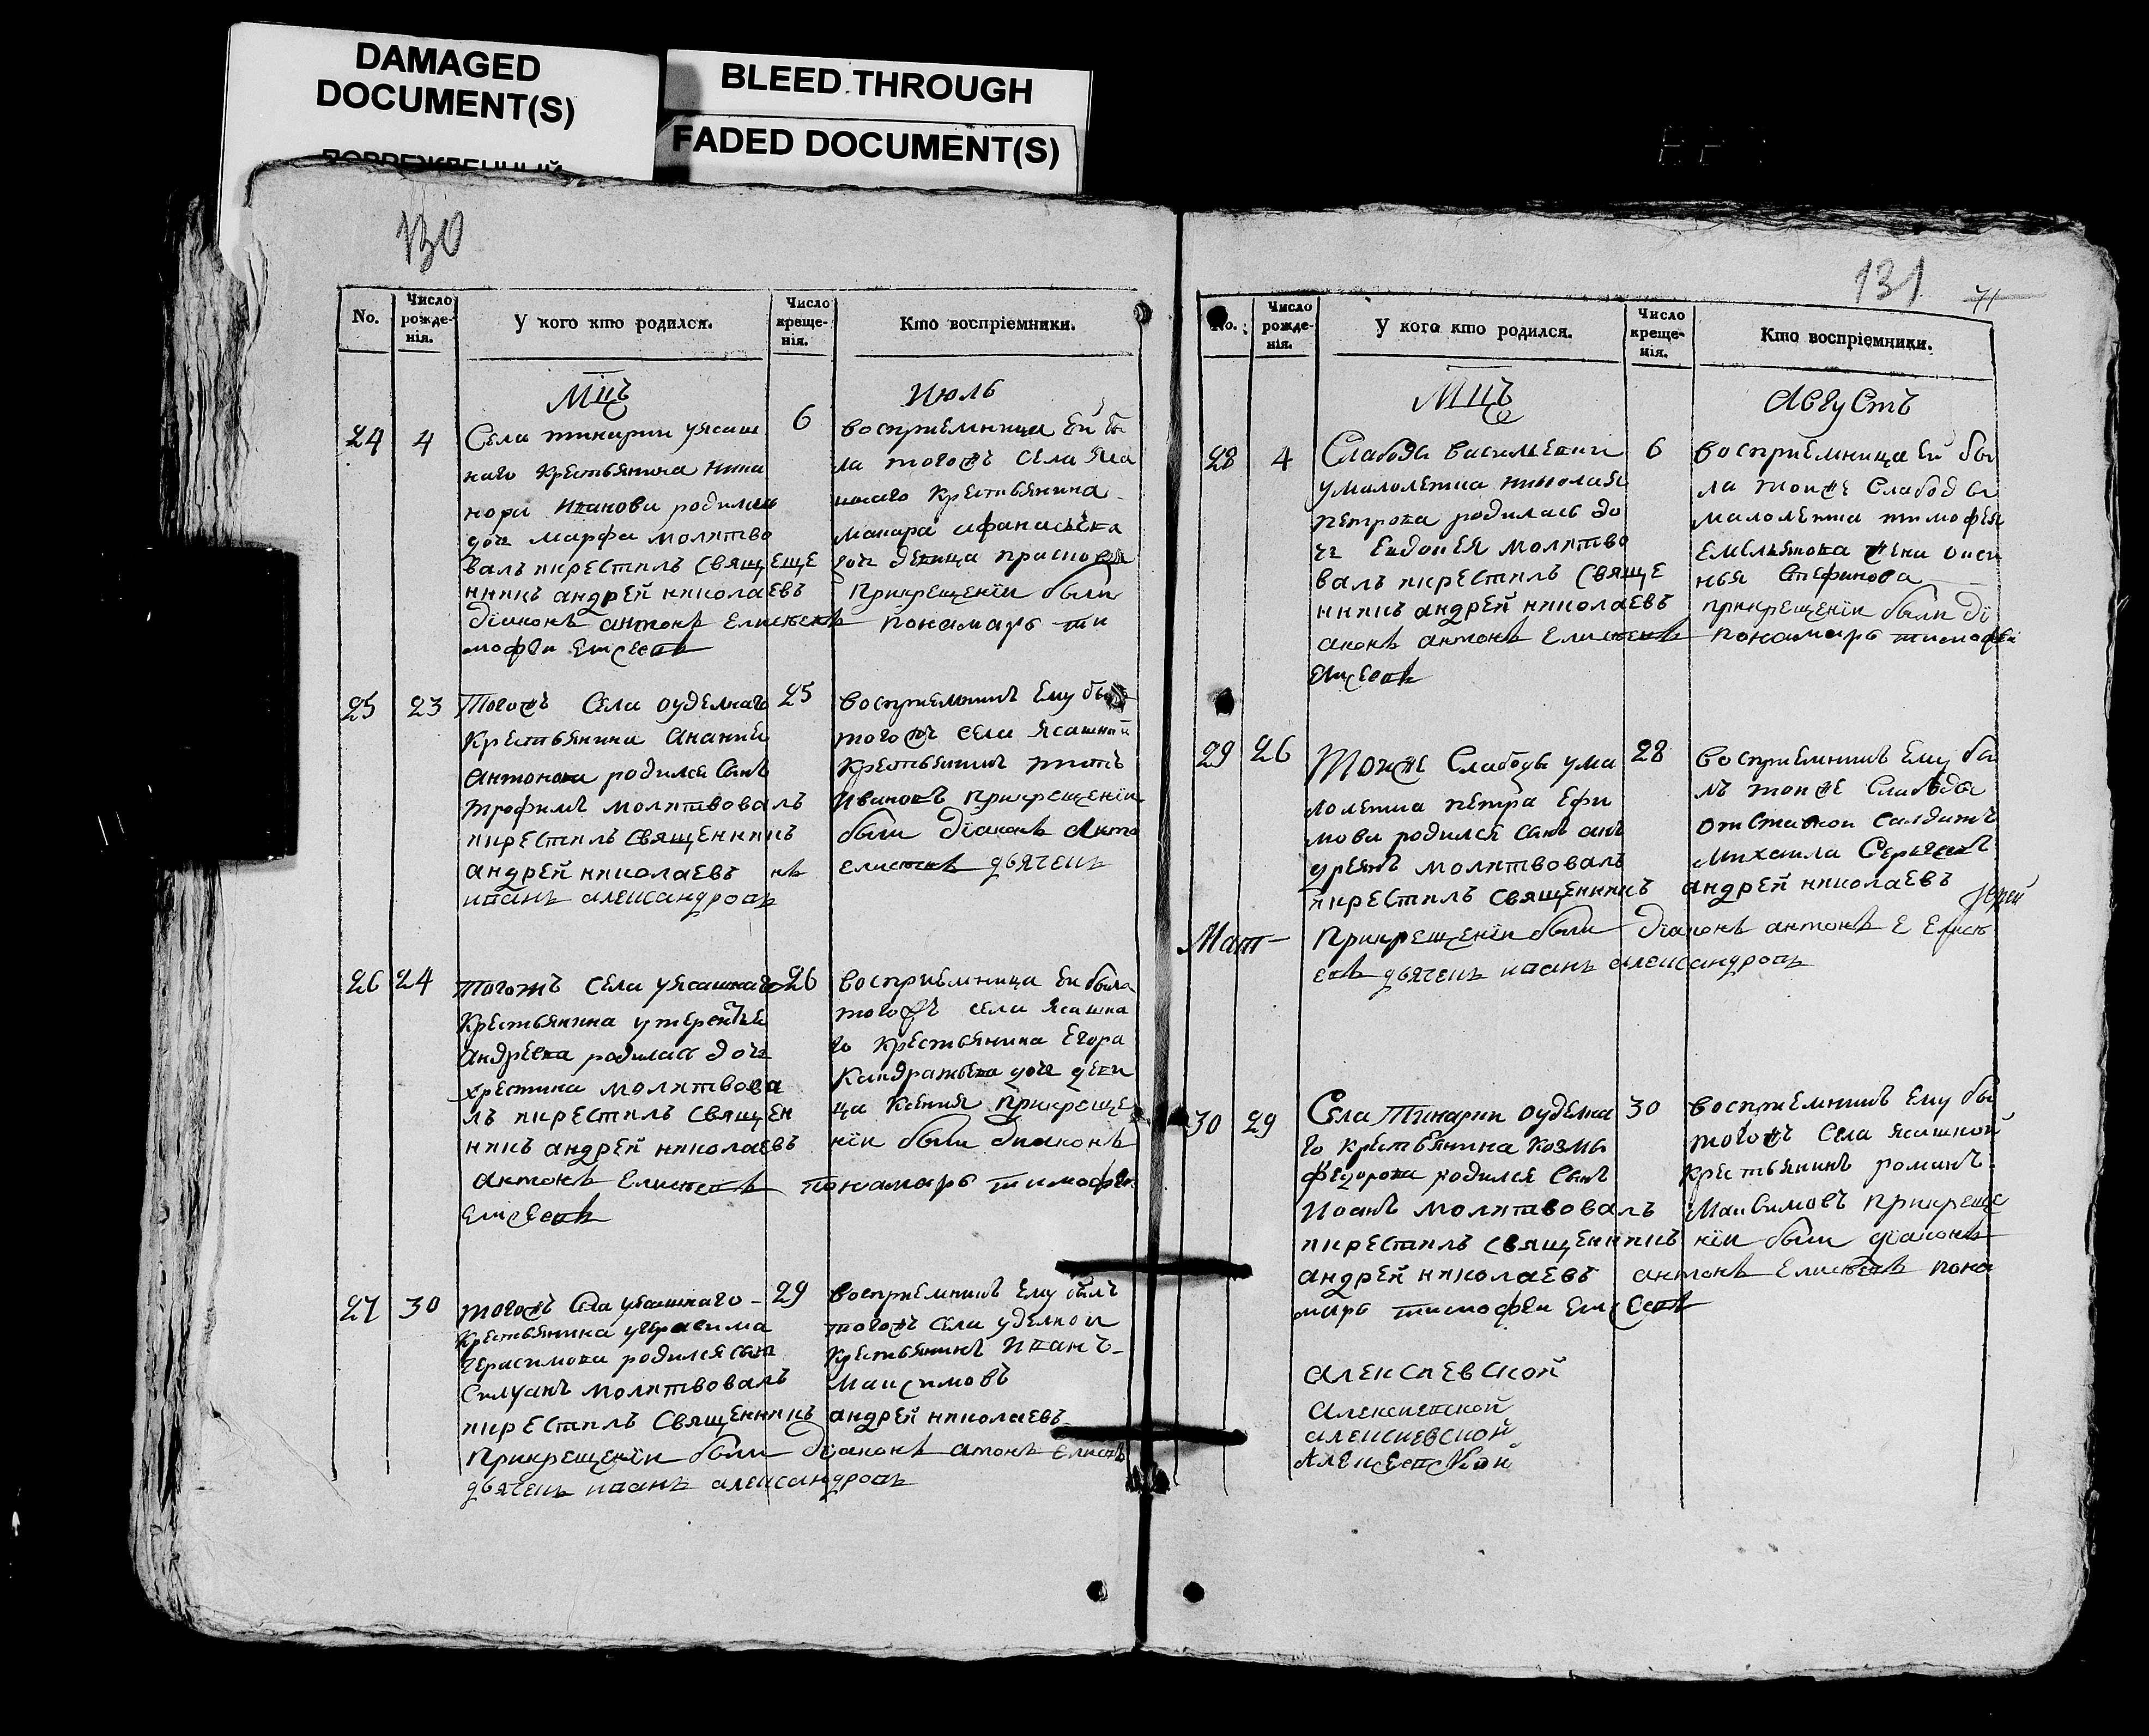 DAMAGED
DOCUMENT(S)
BLEED THROUGH
FADED DOCUMENT(S)
130
No.
Число рожде-нія.
У кого кто родился.
Число креще-нія.
Кто воспріемники.
Мцъ
Июль
24 4
Села тинарки уясаш
наго крестьянина
Иванова родилась
дочь марфа молитво
валъ икрестилъ свяще
нникъ андрей николаевъ
діаконъ антонъ елисеевъ понамарь ти
мофеи елисеевъ
6
восприемница ей бы
ла тогожъ села яса
шнаго крестьянина
макара афанасьева
дочь девица
прикрещеніи были
25 23
Тогожъ Села оуделнаго
крестьянина ананьи
антонова родился сынъ
трофимъ молитвовалъ
икрестилъ священникъ
андрей николаевъ
иванъ александровъ
25
восприемникъ ему былъ
тогожъ села ясашной
крестьянинъ титъ
ивановъ прикрещеніи
были діаконъ анто
нъ елисеевъ дьячекъ
26 24
тогожъ села уясашнаго
крестьянина утерентье
андреева родилась дочь
христина молитвова
лъ икрестилъ священ
никъ андрей николаевъ
антонъ елисеевъ понамарь тимофеи
елисеевъ
26
восприемница ей была
тогожъ села ясашна
го крестьянина егора
кандратьева дочь деви
ца ксения прикреще
ніи были диаконъ
27 30
тогожъ села уясашнаго
крестьянина угерасима
герасимова родился сынъ
силуанъ молитвовалъ
икрестилъ священникъ андрей николаевъ
прикрещеніи были діаконъ атонъ елисеевъ
дьячекъ иванъ александровъ
29
восприемникъ ему былъ
тогожъ села уделной
крестьянинъ иванъ
максимовъ
131
71
No.
Число рожде-нія.
У кого кто родился.
Число креще-нія.
Кто воспріемники.
Мцъ
Августъ
28 4
Слабоды
умалолетка николая
петрова родилась до
чь евдокея молитво
валъ икрестилъ свяще
нникъ андрей николаевъ
аконъ антонъ елисеевъ понамарь тимофеи
елисеевъ
6
восприемница ей бы
ла тоиже слабод
малолетка тимофея
емельянова жена
стефанова
прикрещеніи были ді
29 26
тоиже слабоды ума
лолетка петра ефи
мова родился сынъ ан
дреянъ молитвовалъ
икрестилъ священникъ андрей николаевъ
иерей
Мат
прикрещеніи были діаконъ антонъ е елисе
евъ дьячекъ иванъ александровъ
28
восприемникъ ему бы
лъ тоиже слабоды
отставнои салдатъ
михаила
30 29
Села тинарки оуделна
го крестьянина козмы
федорова родился сынъ
иоанъ молитвовалъ
икрестилъ священникъ
андрей николаевъ антонъ елисеевъ пона
марь тимофеи елисеевъ
30
восприемникъ ему бы
тогожъ села ясашной
крестьянинъ романъ
максимовъ прикреще
ніи были діаконъ
алексиевской
алексиевской
алексиевской
алексеевской